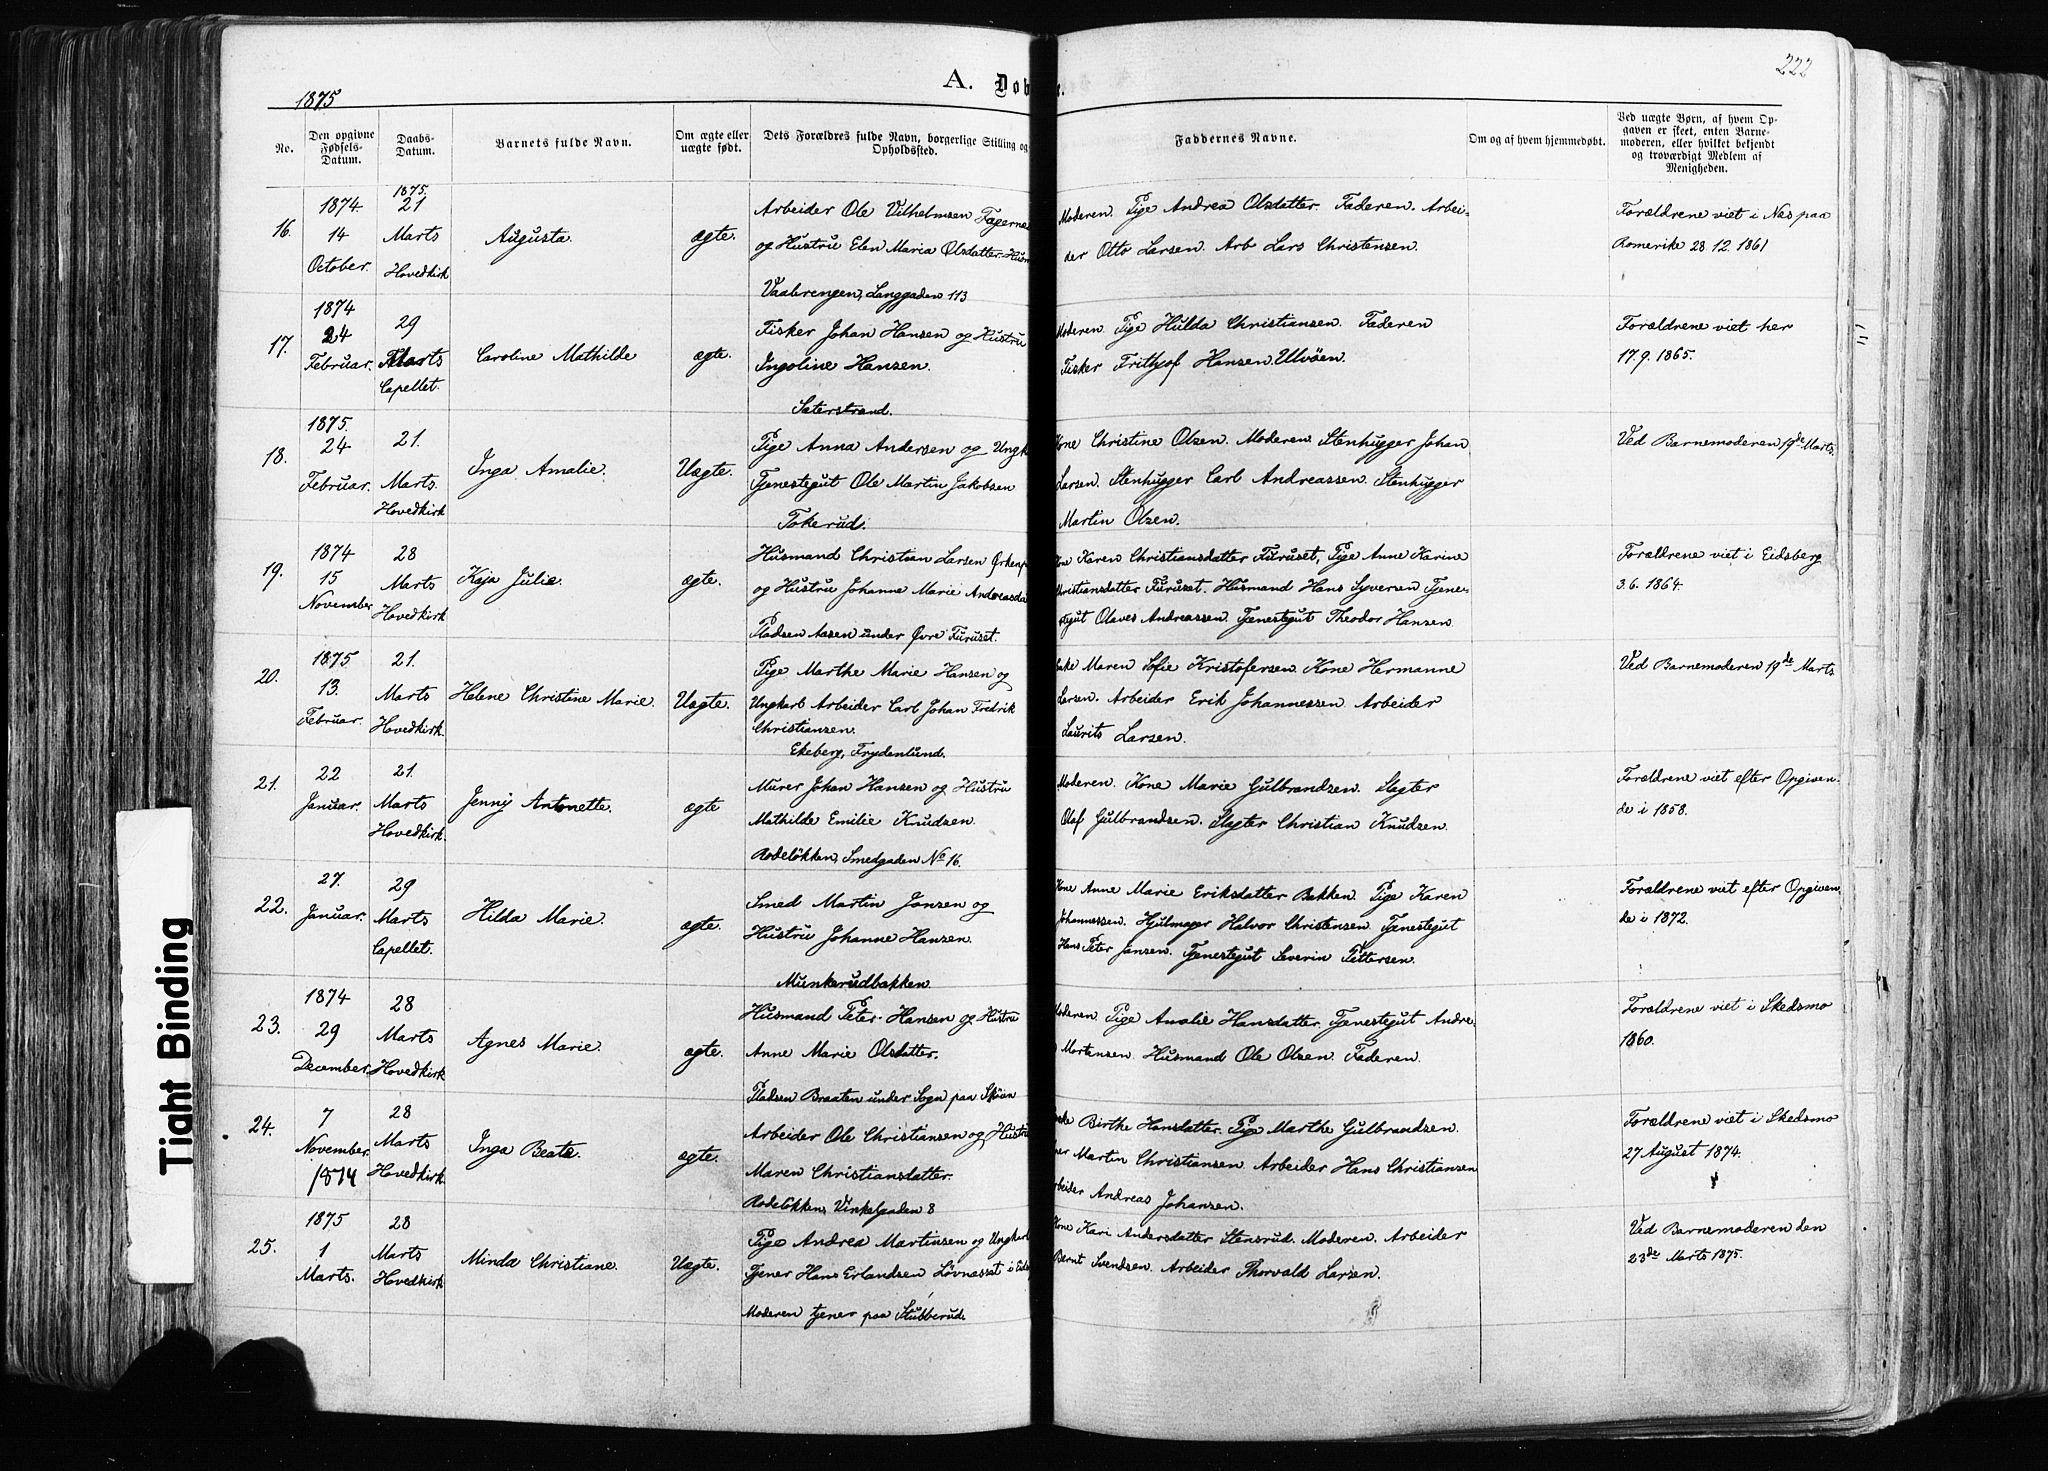 222
1875
A. Døb
No.
Den opgivne Fødsels-Datum.
Daabs-Datum.
Barnets fulde Navn.
Om ægte eller uægte født.
Dets Forældres fulde Navn, borgerlige Stilling og Opholdssted.
Faddernes Navne.
Om og af hvem hjemmedøbt.
Ved uægte Børn, af hvem Op-
gaven er skeet, enten Barne-
moderen, eller hvilket bekjendt
og troværdigt Medlem af
Menigheden.
16.
1874.
14
October.
1875.
21
Marts
Hovedkirk
Augusta.
ægte.
Arbeider Ole Vilhelmsen Fagernes
og Hustru Elen Maria Olsdatter.
Vaalerengen, Langgaden 113
Moderen. Pige Andrea Olsdatter. Faderen. Arbei-
der Otto Larsen. Arb Lars Christensen.
Forældrene viet i Nes paa
Romerike 28.12.1861
17.
1874
24
Februar.
29
Marts
Capellet.
Caroline Mathilde
ægte.
Fisker Johan Hansen og Hustru
Ingoline Hansen.
Saterstrand.
Moderen. Pige Hulda Christiansen. Faderen
Fisker Frithjof Hansen. Ulvöen.
Forældrene viet her
17.9.1865.
18.
1875.
24
Februar.
21.
Marts.
Hovedkirk
Inga Amalie.
Uægte.
Pige Anna Andersen og Ungk
Tjenestegut Ole Martin Jakobsen
Tokerud.
Kone Christine Olsen. Moderen. Stenhugger Johan
Larsen. Stenhugger Carl Andreassen. Stenhugger
Martin Olsen.
Ved Barnemoderen 19de Marts.
19.
1874
15
November
28
Marts
Hovedkirk
Kaja Julie.
ægte.
Husmand Christian Larsen
og Hustru Johanne Marie
Pladsen Aasen under Øvre Furuset.
Kone Karen Christiansdatter Furuset, Pige Anne Karine
Christiansdatter Furuset. Husmand Hans Syversen Tjene-
stegut Olaves Andreassen. Tjenestegut Theodor Hansen
Forældrene viet i Eidsberg
3.6.1864.
20.
1875
13.
Februar.
21.
Marts
Hovedkirk.
Helene Christine Marie.
Uægte.
Pige Marthe Marie Hansen og
Ungkarl Arbeider Carl Johan Fredrik
Christiansen.
Ekeberg, Frydenlund.
Enke Maren Sofie Kristofersen. Kone Hermanne
Larsen. Arbeider Erik Johannessen. Arbeider
Laurits Larsen.
Ved Barnemoderen 19de Marts.
21.
22
Januar.
21.
Marts
Hovedkirk.
Jenny Antonette.
ægte
Murer Johan Hansen og Hustru
Mathilde Emilie Knudsen.
Rodelökken, Smedgaden No 16.
Moderen. Kone Marie Gulbrandsen. Slagter
Olaf Gulbrandsen. Slagter Christian Knudsen.
Forældrene viet efter Opgiven-
de i 1858.
22.
27.
Januar.
29
Marts
Capellet.
Hilda Marie.
ægte.
Smed Martin Jansen og
Hustru Johanne Hansen.
Munkerudbakken.
Kone Anne Marie Eriksdatter Bakken. Pige Karen
Johannessen. Hjulmager Halvor Christensen. Tjenestegut
Hans Peter Jansen. Tjenestegut Severin Pettersen.
Forældrene viet efter Opgiven-
de i 1872.
23.
1874
29
December.
28
Marts
Hovedkirk
Agnes Marie.
ægte.
Husmand Peter Hansen og Hustru
Anne Marie Olsdatter.
Pladsen Braaten under Sogn paa
Moderen. Pige Amalie Hansdatter. Tjenestegut Andre-
Mortensen. Husmand Ole Olsen. Faderen.
Forældrene viet i Skedsmo
1860.
24.
7
November.
1874
28
Marts
Hovedkirk
Inga Beate.
ægte.
Arbeider Ole Christiansen og Hustru
Maren Christiansdatter.
Rodelökken, Vinkelgaden 8
Birthe Hansdatter. Pige Marthe Gulbrandsen.
Martin Christiansen. Arbeider Hans Christiansen
Arbeider Andreas Johansen.
Forældrene viet i Skedsmo
27 August 1874.
25.
1875
1
Marts.
28
Marts
Hovedkirk
Minda Christiane.
Uægte.
Pige Andrea Martinsen og Ungkarl
Tjener Hans Erlandsen Lövnæsset i
Moderen tjener paa Stubberud.
Kone Kari Andersdatter Stensrud. Moderen. Arbeider
Bernt Svendsen. Arbeider Thorvald Larsen.
Ved Barnemoderen den
23de Marts 1875.
Tight Binding